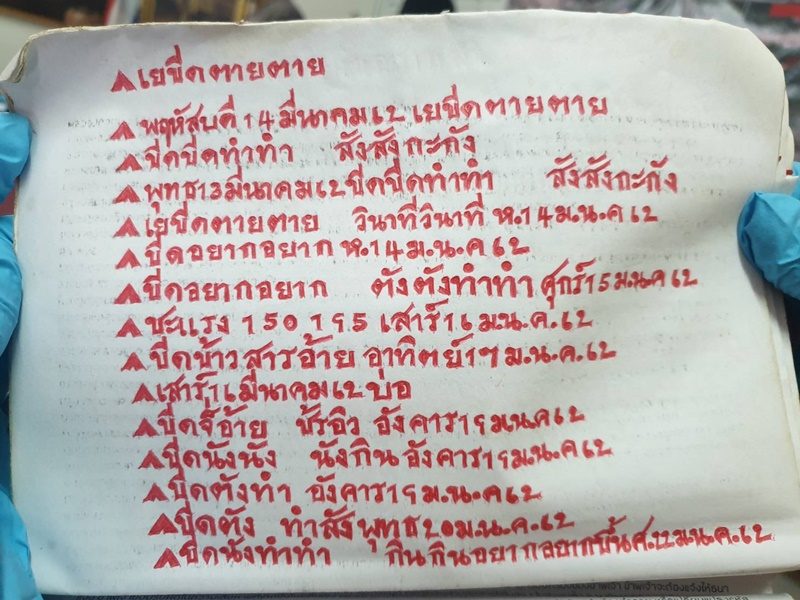 เยขี่ดตายตาย
พฤหัสบดี 14 มี่นาคม 62 เยขี่ดตายตาย
ขี่ดขี่ดทำทำ สังสังกะกัง
พุทธ13มี่นาคม62ขี่ดขี่ดทำทำ สังสังกะกัง
เยขี่ดตายตาย วินาที่วินาที่ ห.14ม.น.ค62
ขี่ดอยากอยาก ห.14 ม.น.ค 62
ขี่ดอยากอยาก ตังตังทำทำ ศุกร์15ม.น.ค62
ชะแรง 150 195 เสาร์16 ม.น.ค.62
ขี่ดข้าวสารอ้าย อาทิตย์17 ม.น.ค.62
เสาร์16มี่นาคม62 บ่อ
ขี่ดจ็อ้าย ชัรอิว อังคาร19ม.น.ค62
ขี่ดนังนัง นังกิน อังคาร19ม.น.ค62
ขี่ดตังทำ อังคาร19ม.น.ค62
ขี่ดตัง ทำสัง พุทธ20ม.น.ค.62
ขี่ดนังทำทำ กินกินอยากอยากขึ้นศ.22ม.น.ค.62